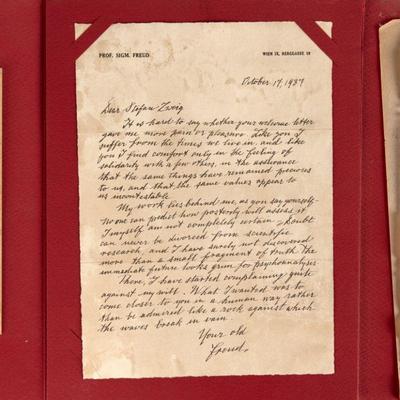 PROF. SIGM. FREUD
WIEN IX. BERGGASSE 19
October 17, 1937
Dear Stefan Zweig
It is hard to say whether your welcome letter
gave me more pain or pleasure. Like you I
suffer from the times we live in, and like
you I find comfort only in the feeling of
solidarity with a few others, in the assurance
that the same things have remained precious
to us, and that the same values appear to
us incontestable.
My work lies behind me, as you say yourself.
No one can predict how posterity will assess it.
I myself am not completely certain, Doubt
can never be divorced from scientific
research, and I have surely not discovered
more than a small fragment of truth. The
immediate future looks grim for psychoanalysis.
There, I have started complaining quite
against my will. What I wanted was to
come closer to you in a human way rather
than be admired like a rock against which
the waves break in vain.
Your old
Freud.